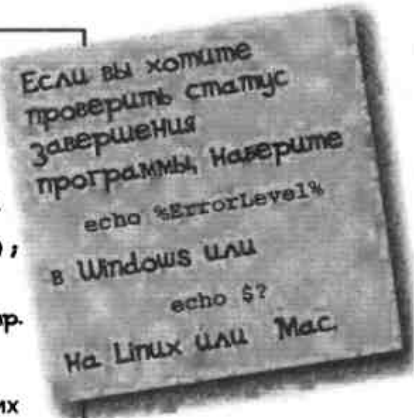 Если вы хотите
проверить статус
завершения
программы, наверите
echo %ErrorLevel%
в Windows или
echo $?
На Linux или Mac.
);
р.
их